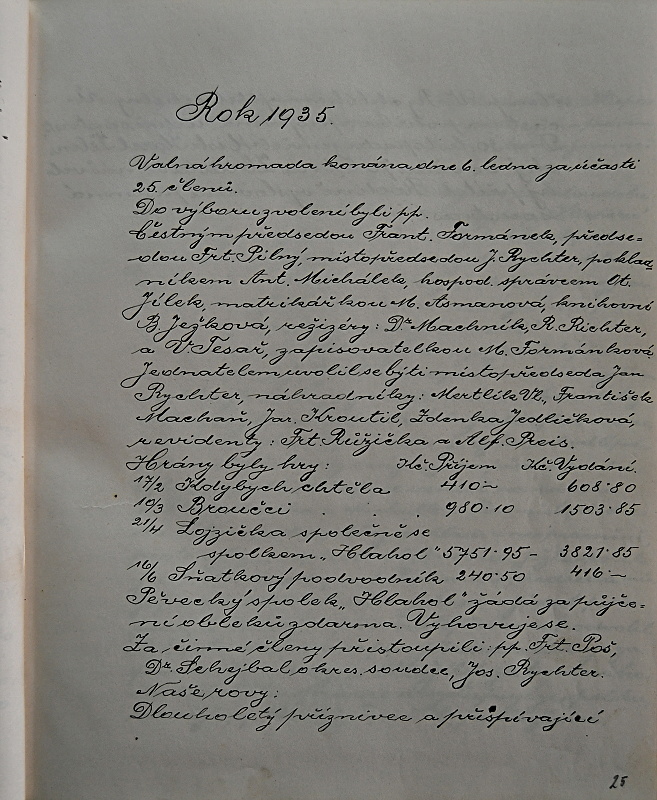 Rok 1935.
Valná hromada konána dne 6. ledna za účasti
25. členů.
Do výboru zvoleni byli pp.
Čestným předsedou Frant. Formánek, předse-
dou Frt. Pilný, místopředsedou J. Rychter, poklad-
níkem Ant. Michálek, hospod. správcem Ot.
Jílek, matrikářkou M. Asmanová, knihovní
B. Ježková, režizéry: Dr Machník, R. Richter,
a V. Tesař, zapisovatelkou M. Formánková
Jednatelem uvolil se býti místopředseda Jan
Rychter, náhradníky: Mertlík Vl., František
Machaň, Jar. Kroutil, Zdenka Jedličková,
revidenty: Frt. Růžička a Alf. Preis.
Hrány byly hry: Kč. Příjem Kč. Vydání.
17/2 Kdybych chtěla 410·– 608·80
10/3 Broučci . . . 980·10 1503·85
21/4 Lojzička společně se
spolkem „Hlahol" 5751·95– 3821·85
16/6 Sňatkový podvodník 240·50 416·–
Pěvecký spolek „Hlahol" žádá za půjčo-
ní obleků zdarma. Vyhovuje se.
Za činné členy přistoupili: pp. Frt. Poš,
Dr. Schejbal okres. soudce, Jos. Rychter.
Naše rovy:
Dlouholetý příznivec a přispívající
25